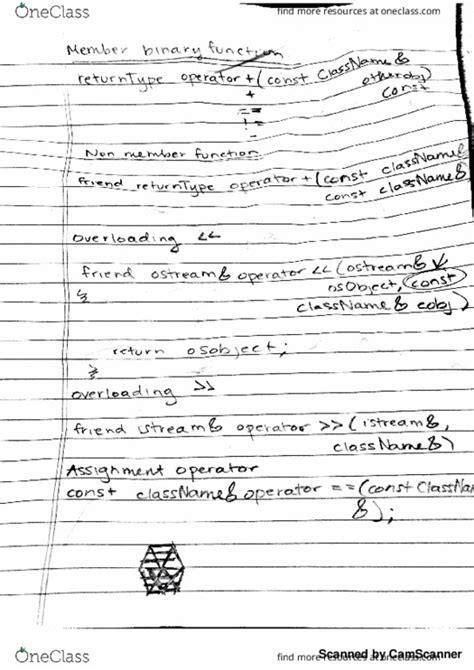 OneClass
find more resources at oneclass.com
Member binary function
returnType operator +(const ClassName &
otherobj)
+ const
==
!=
-
Non member function
friend returnType operator +(const className&
const className&
overloading <<
friend ostream& operator << (ostream&
osObject, const
className& eobj)
{
return osobject;
}
overloading >>
friend istream& operator >> (istream&,
className&)
Assignment operator
const className& operator ==(const ClassNa
&);
OneClass
find more resources at oneclass.com
Scanned by CamScanner